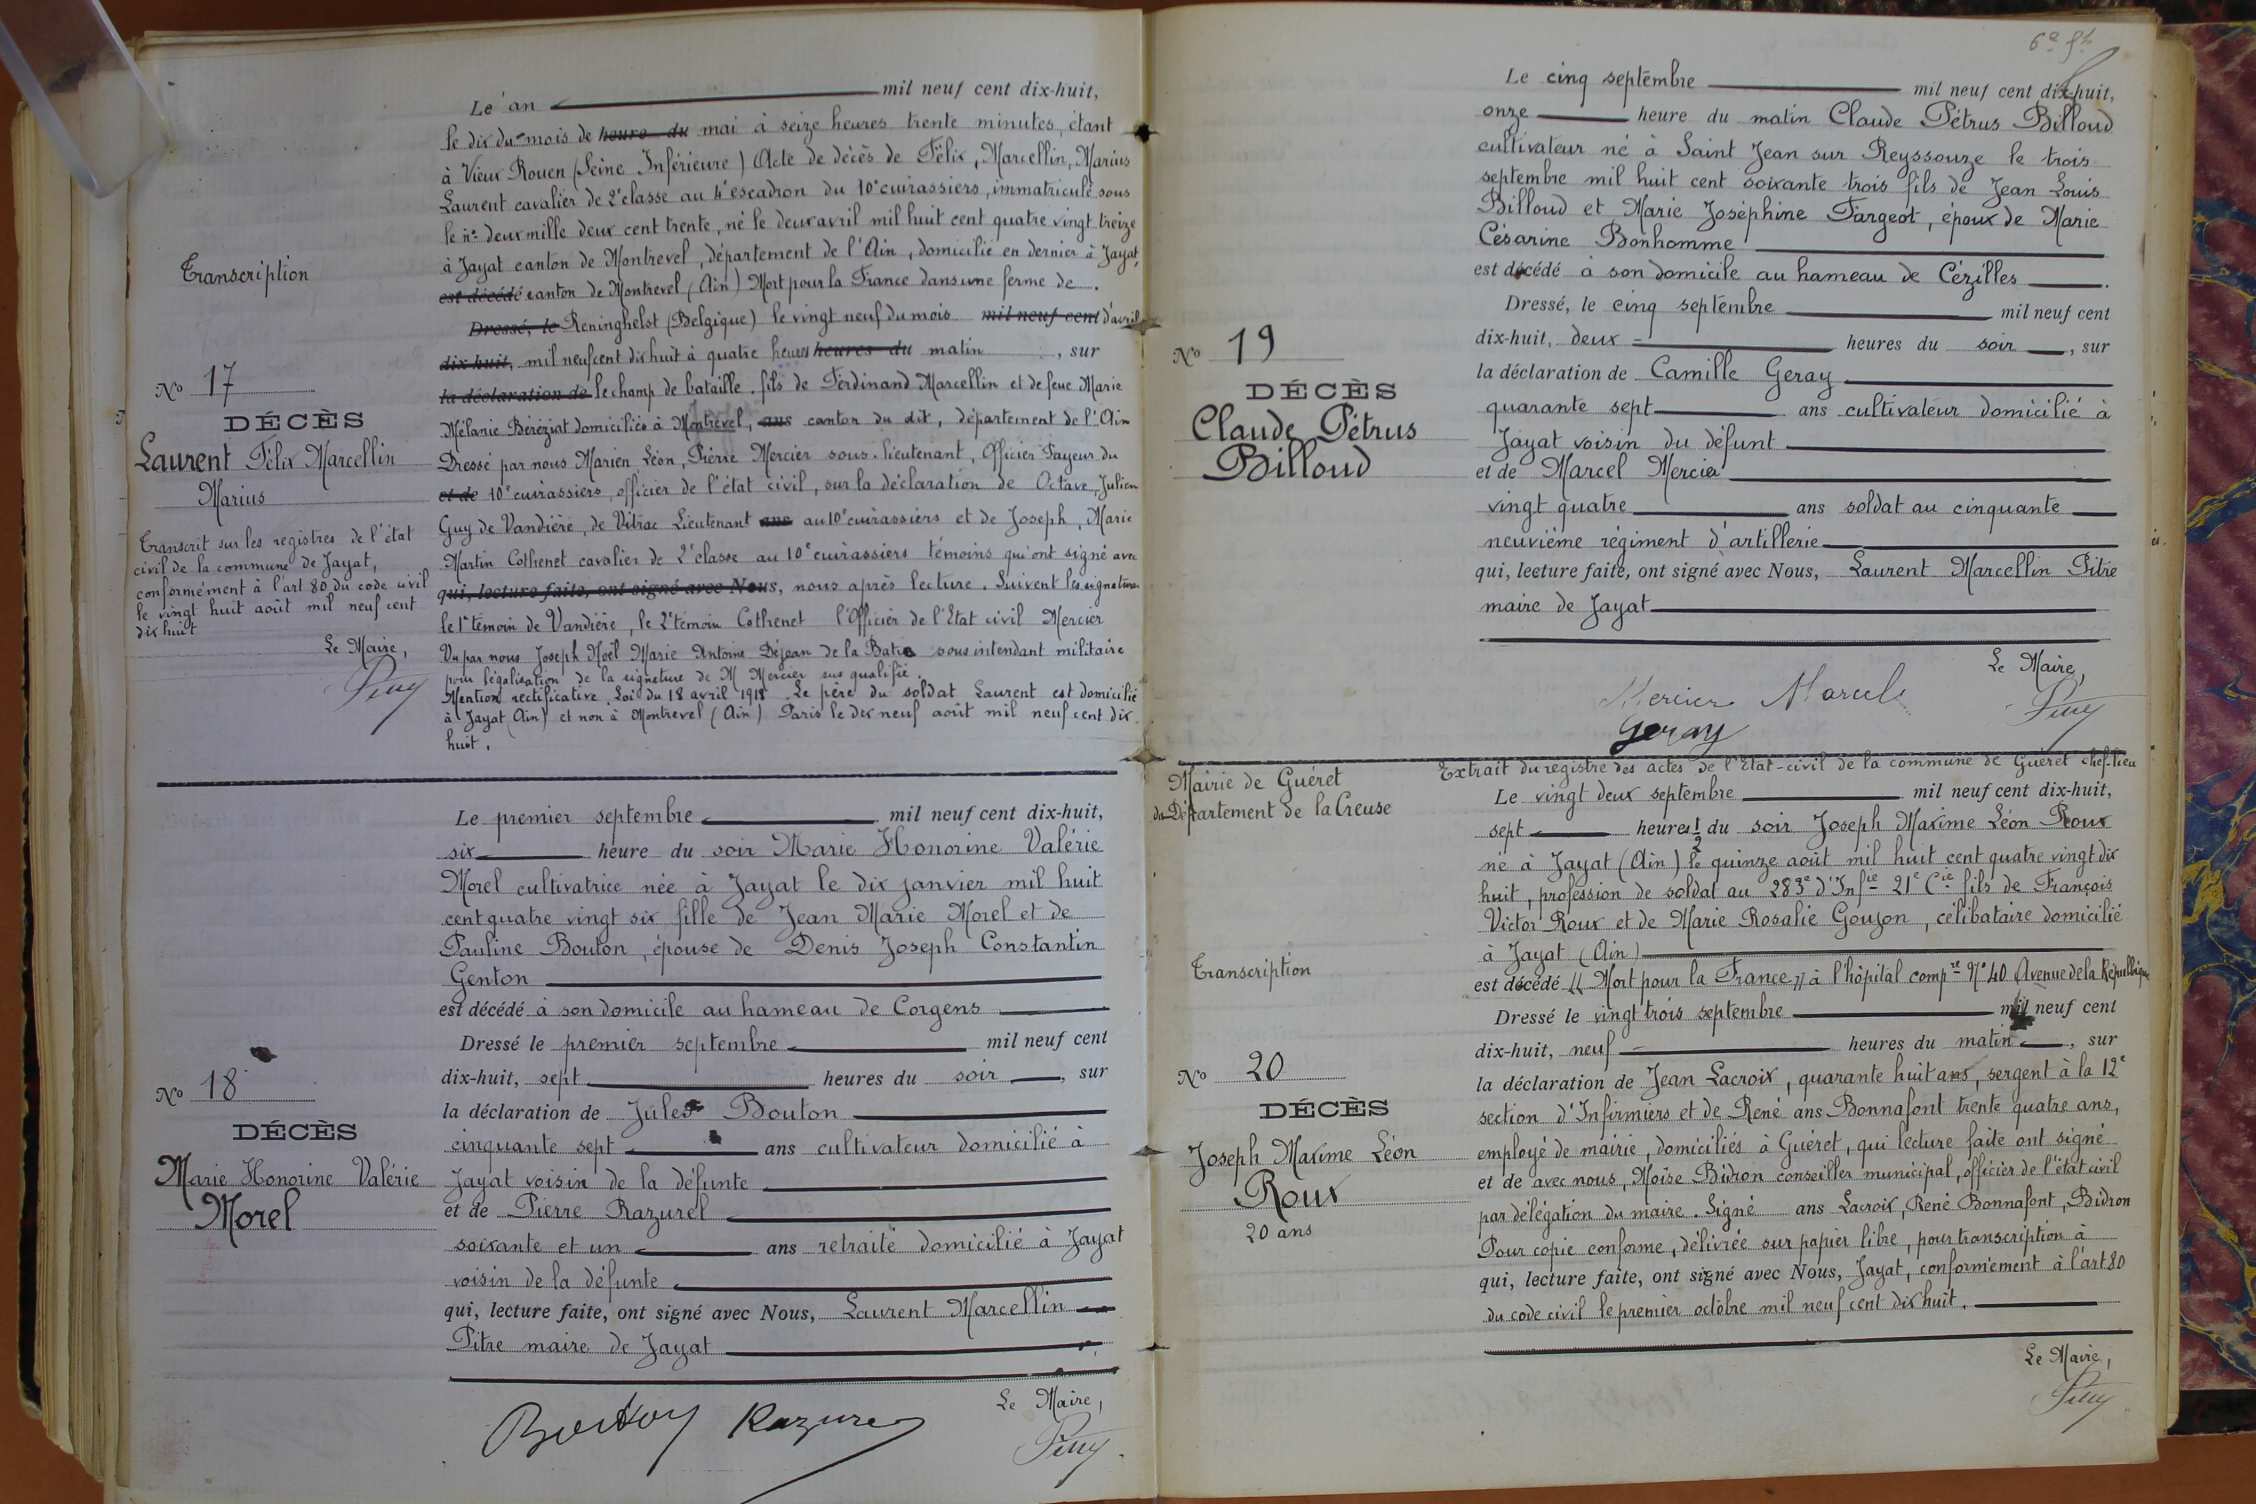 Transcription
No 17
DÉCÈS
Laurent Félix Marcellin
Marius
Transcrit sur les registres de l'état
civil de la commune de Jayat,
conformément à l'art 80 du code civil
le vingt huit août mil neuf cent
dix huit
Le Maire,
Le an mil neuf cent dix-huit,
le dix du mois de heure du mai à seize heures trente minutes, étant
à Vieux Rouen (Seine Inférieure) Acte de décès de Félix, Marcellin, Marius
Laurent cavalier de 2e classe au 4e escadron du 10e cuirassiers, immatriculé sous
le no deux mille deux cent trente, né le deux avril mil huit cent quatre vingt treize
à Jayat canton de Montrevel, département de l'Ain, domicilié en dernier à Jayat,
est décédé canton de Montrevel (Ain) Mort pour la France dans une ferme de
Dressé, le Reninghelst (Belgique) le vingt neuf du mois mil neuf cent d'avril
dix-huit, mil neuf cent dix huit à quatre heures heures du matin, sur
la déclaration de le champ de bataille. fils de Ferdinand Marcellin et de feue Marie
Mélanie Béréziat domiciliés à Montrevel, ans canton du dit, département de l'Ain
Dressé par nous Marien Léon, Pierre Mercier sous-lieutenant, Officier Payeur du
et de 10e cuirassiers, officier de l'état civil, sur la déclaration de Octave, Julien
Guy de Vandière, de Vitrac Lieutenant ans au 10e cuirassiers et de Joseph, Marie
Martin Cothenet cavalier de 2e classe au 10e cuirassiers témoins qui ont signé avec
qui, lecture faite, ont signé avec Nous, nous après lecture. Suivent les signatures
le 1er témoin de Vandière, le 2e témoin Cothenet l'Officier de l'Etat civil Mercier
Vu par nous Joseph Noël Marie Antoine Déjean de la Batie sous intendant militaire
pour légalisation de la signature de M Mercier sus qualifié.
Mention rectificative. Loi du 18 avril 1918. Le père du soldat Laurent est domicilié
à Jayat (Ain) et non à Montrevel (Ain) Paris le dix neuf août mil neuf cent dix
huit.
No 18
DÉCÈS
Marie Honorine Valérie
Morel
Le premier septembre mil neuf cent dix-huit,
six heure du soir Marie Honorine Valérie
Morel cultivatrice née à Jayat le dix janvier mil huit
cent quatre vingt six fille de Jean Marie Morel et de
Pauline Bouton, épouse de Denis Joseph Constantin
Genton
est décédé à son domicile au hameau de Corgens
Dressé le premier septembre mil neuf cent
dix-huit, sept heures du soir, sur
la déclaration de Jules Bouton
cinquante sept ans cultivateur domicilié à
Jayat voisin de la défunte
et de Pierre Razurel
soixante et un ans retraité domicilié à Jayat
voisin de la défunte
qui, lecture faite, ont signé avec Nous, Laurent Marcellin
Pitre maire de Jayat
Le Maire,
Bouton Razurel
No 19
DÉCÈS
Claude Pétrus
Billoud
Le cinq septembre mil neuf cent dix-huit,
onze heure du matin Claude Pétrus Billoud
cultivateur né à Saint Jean sur Reyssouze le trois
septembre mil huit cent soixante trois fils de Jean Louis
Billoud et Marie Joséphine Fargeot, époux de Marie
Césarine Bonhomme
est décédé à son domicile au hameau de Cézilles
Dressé, le cinq septembre mil neuf cent
dix-huit, deux heures du soir, sur
la déclaration de Camille Geray
quarante sept ans cultivateur domicilié à
Jayat voisin du défunt
et de Marcel Mercier
vingt quatre ans soldat au cinquante
neuvième régiment d'artillerie
qui, lecture faite, ont signé avec Nous, Laurent Marcellin Pitre
maire de Jayat
Le Maire,
Mercier Marcel
Geray
Mairie de Guéret
du Département de la Creuse
Transcription
No 20
DÉCÈS
Joseph Maxime Léon
Roux
20 ans
Extrait du registre des actes de l'Etat-civil de la commune de Guéret chef-lieu
Le vingt deux septembre mil neuf cent dix-huit,
sept heures 1/2 du soir Joseph Maxime Léon Roux
né à Jayat (Ain) le quinze août mil huit cent quatre vingt dix
huit, profession de soldat au 283e d'Infie 21e Cie fils de François
Victor Roux et de Marie Rosalie Goujon, célibataire domicilié
à Jayat (Ain)
est décédé "Mort pour la France" à l'hôpital compre No 40 Avenue de la République
Dressé le vingt trois septembre mil neuf cent
dix-huit, neuf heures du matin, sur
la déclaration de Jean Lacroix, quarante huit ans, sergent à la 12e
section d'Infirmiers et de René ans Bonnafont trente quatre ans,
employé de mairie, domiciliés à Guéret, qui lecture faite ont signé
et de avec nous, Moïse Bidron conseiller municipal, officier de l'état civil
par délégation du maire. Signé ans Lacroix, René Bonnafont, Bidron
Pour copie conforme, délivrée sur papier libre, pour transcription à
qui, lecture faite, ont signé avec Nous, Jayat, conformément à l'art 80
du code civil le premier octobre mil neuf cent dix huit.
Le Maire,